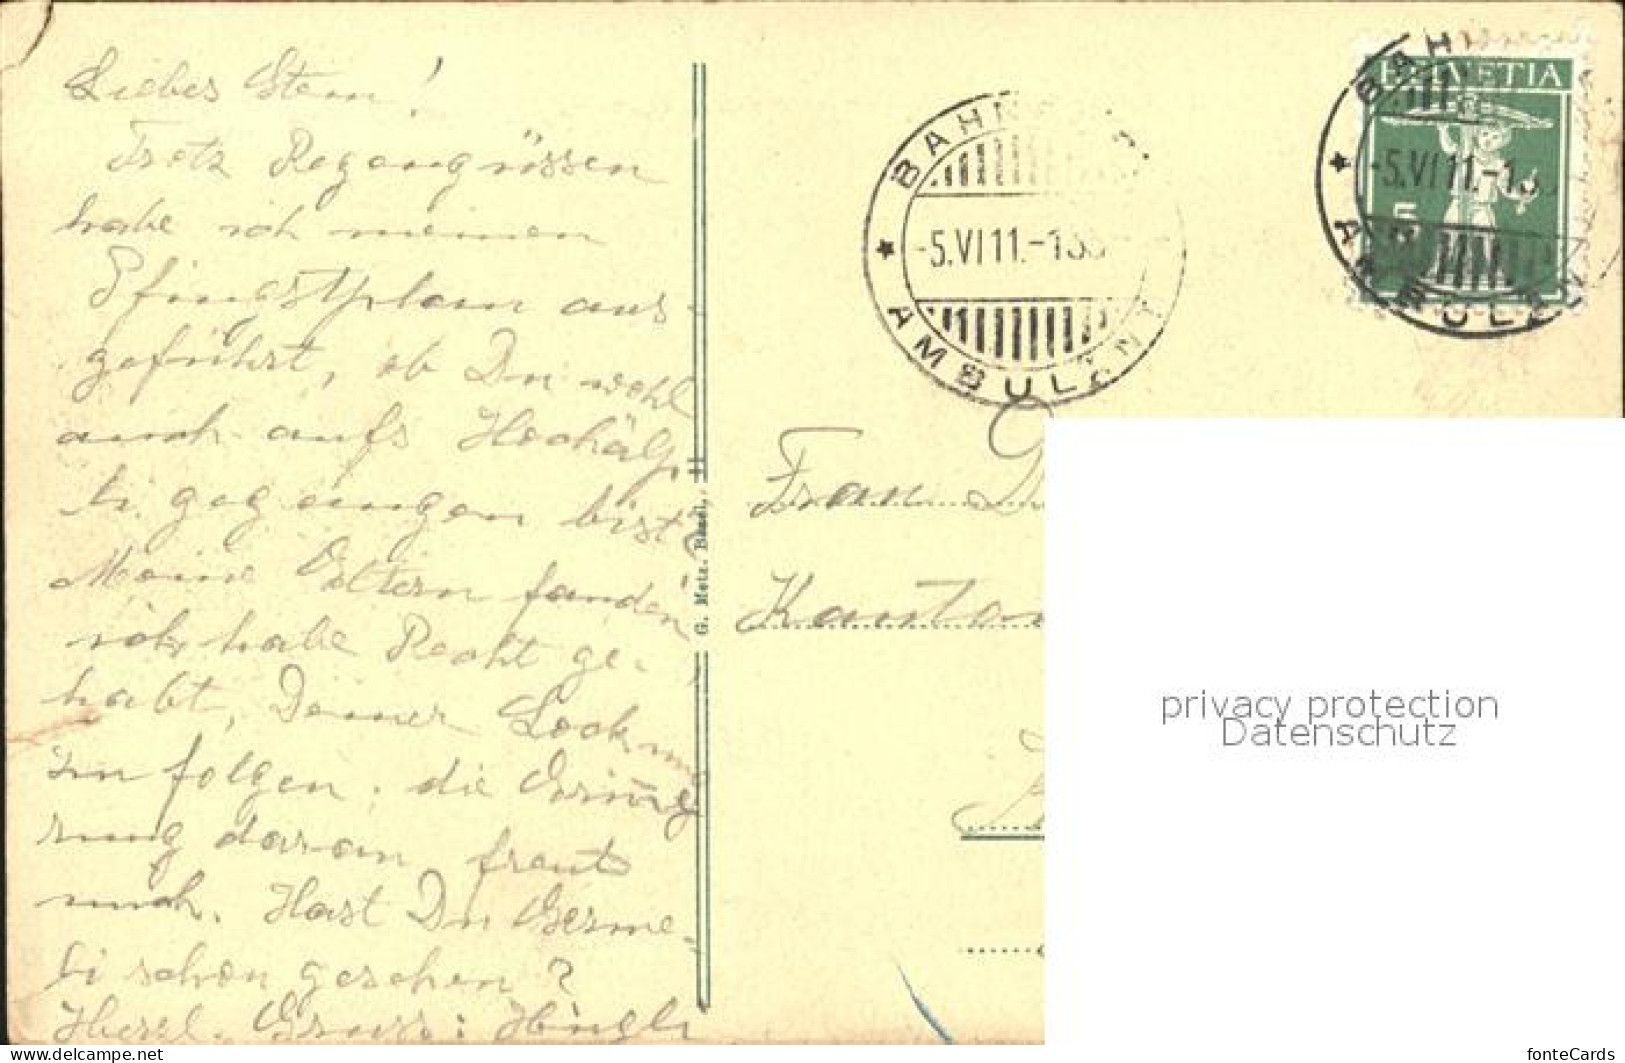 Liebes Stern!
Trotz Regengüssen
habe ich meinen
Pfingstplan aus-
geführt, ob Du wohl
auch aufs Hochälp-
li gegangen bist?
Meine Eltern fanden
ich habe Recht ge-
habt, Deiner Lockung
zu folgen, die Erinne-
rung daran freut
mich. Hast Du
schon gesehen?
Herzl. Gruss:
G. Metz, Basel.
BAHN
-5.VI 11.-1
AMBULANT
BAH
HELVETIA
-5.VI 11.-1
5
AMBULANT
Frau
Kanton
privacy protection
Datenschutz
https://www.ansichtskarten-center.de/
fonteCards